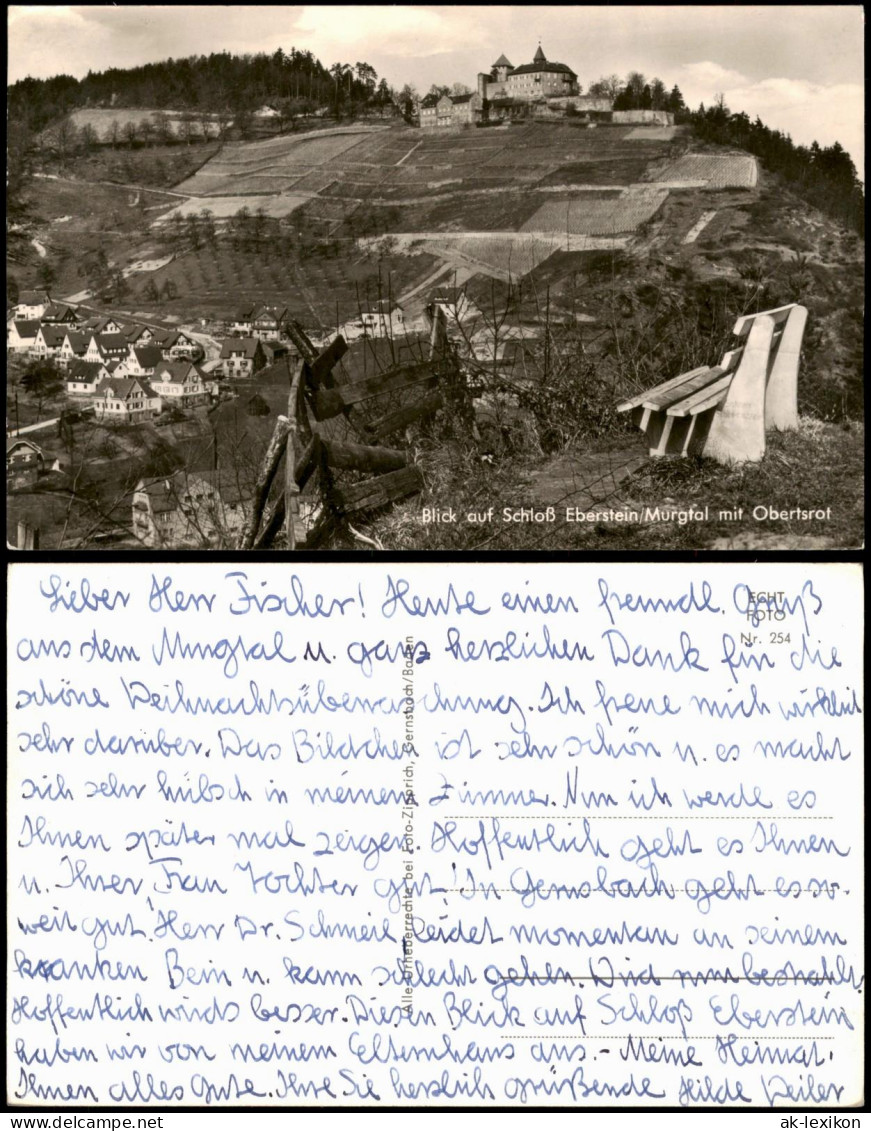 Blick auf Schloß Eberstein/Murgtal mit Obertsrot
ECHT
FOTO
Nr. 254
Alle Urheberrechte bei Foto-Zipperich, Gernsbach/Baden
Lieber Herr Fischer! Heute einen freundl. Gruß
aus dem Murgtal u. ganz herzlichen Dank für die
schöne Weihnachtsüberraschung. Ich freue mich wirklich
sehr darüber. Das Bildchen ist sehr schön u. es macht
sich sehr hübsch in meinem Zimmer. Nun ich werde es
Ihnen später mal zeigen. Hoffentlich geht es Ihnen
u. Ihrer Frau Tochter gut! In Gernsbach geht es so
weit gut! Herr Dr. Schmeil leidet momentan an seinem
kranken Bein u. kann schlecht gehen. Wird nun bestrahlt.
Hoffentlich wirds besser. Diesen Blick auf Schloß Eberstein
haben wir von meinem Elternhaus aus. - Meine Heimat.
Ihnen alles Gute. Ihre Sie herzlich grüßende Hilde Weiler
ak-lexikon